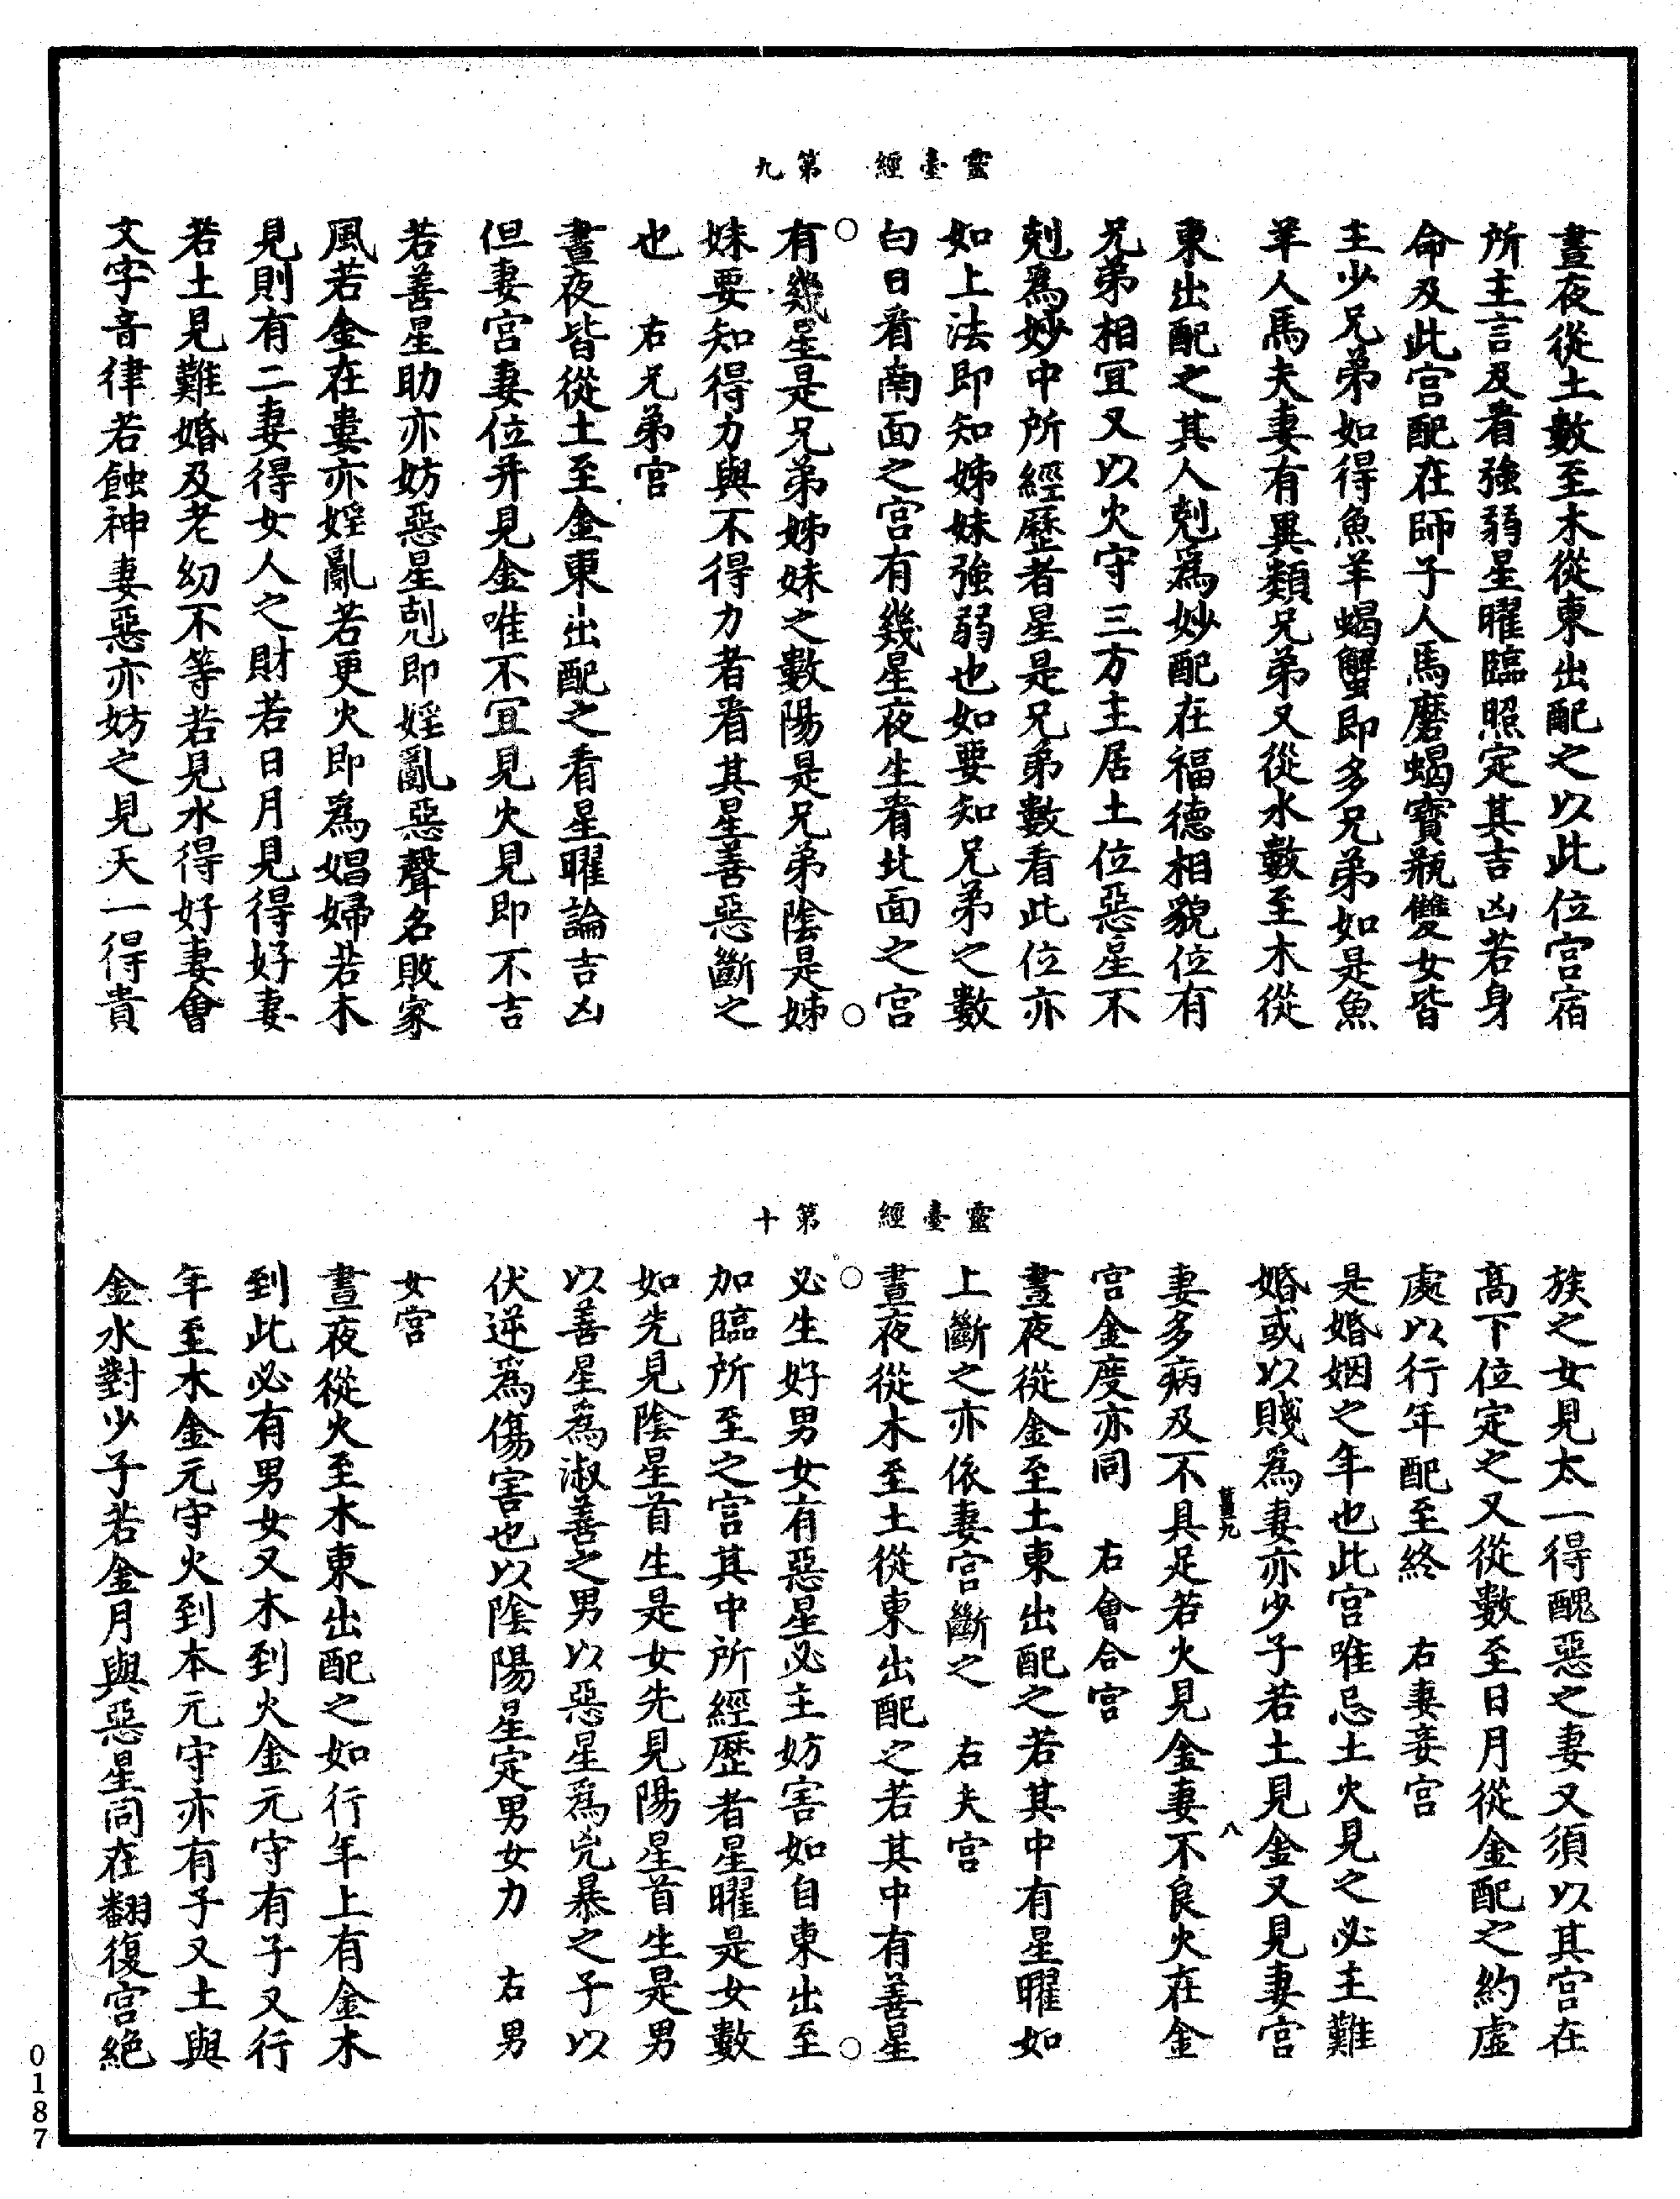 靈臺經　第九
晝夜從土數至木從東出配之以此位宮宿
所主言及看強弱星曜臨照定其吉凶若身
命及此宮配在師子人馬磨蝎寶瓶雙女皆
主少兄弟如得魚羊蝎蟹即多兄弟如是魚
羊人馬夫妻有異類兄弟又從水數至木從
東出配之其人剋爲妙配在福德相貌位有
兄弟相冝又以火守三方主居土位惡星不
剋爲妙中所經歷者星是兄弟數看此位亦
如上法即知姊妹強弱也如要知兄弟之數
白日看南面之宮有幾星夜生看北面之宮
有幾星是兄弟姊妹之數陽是兄弟陰是姊
妹要知得力與不得力者看其星善惡斷之
也　右兄弟宮
晝夜皆從土至金東出配之看星曜論吉凶
但妻宮妻位并見金唯不冝見火見即不吉
若善星助亦妨惡星剋即婬亂惡聲名敗家
風若金在婁亦婬亂若更火即爲娼婦若木
見則有二妻得女人之財若日月見得好妻
若土見難婚及老幼不等若見水得好妻會
文字音律若蝕神妻惡亦妨之見天一得貴
靈臺經　第十
族之女見太一得醜惡之妻又須以其宮在
髙下位定之又從數至日月從金配之約虛
處以行年配至終　右妻妾宮
是婚姻之年也此宮唯忌土火見之必主難
婚或以賤爲妻亦少子若土見金又見妻宮
薑九　八
妻多病及不具足若火見金妻不良火在金
宮金度亦同　右會合宮
晝夜從金至土東出配之若其中有星曜如
上斷之亦依妻宮斷之　右夫宮
晝夜從木至土從東出配之若其中有善星
必生好男女有惡星必主妨害如自東出至
加臨所至之宮其中所經歷者星曜是女數
如先見陰星首生是女先見陽星首生是男
以善星爲淑善之男以惡星爲兇暴之子以
伏逆爲傷害也以陰陽星定男女力　右男
女宮
晝夜從火至木東出配之如行年上有金木
到此必有男女又木到火金元守有子又行
年至木金元守火到本元守亦有子又土與
金水對少子若金月與惡星同在翻復宮絕
0187